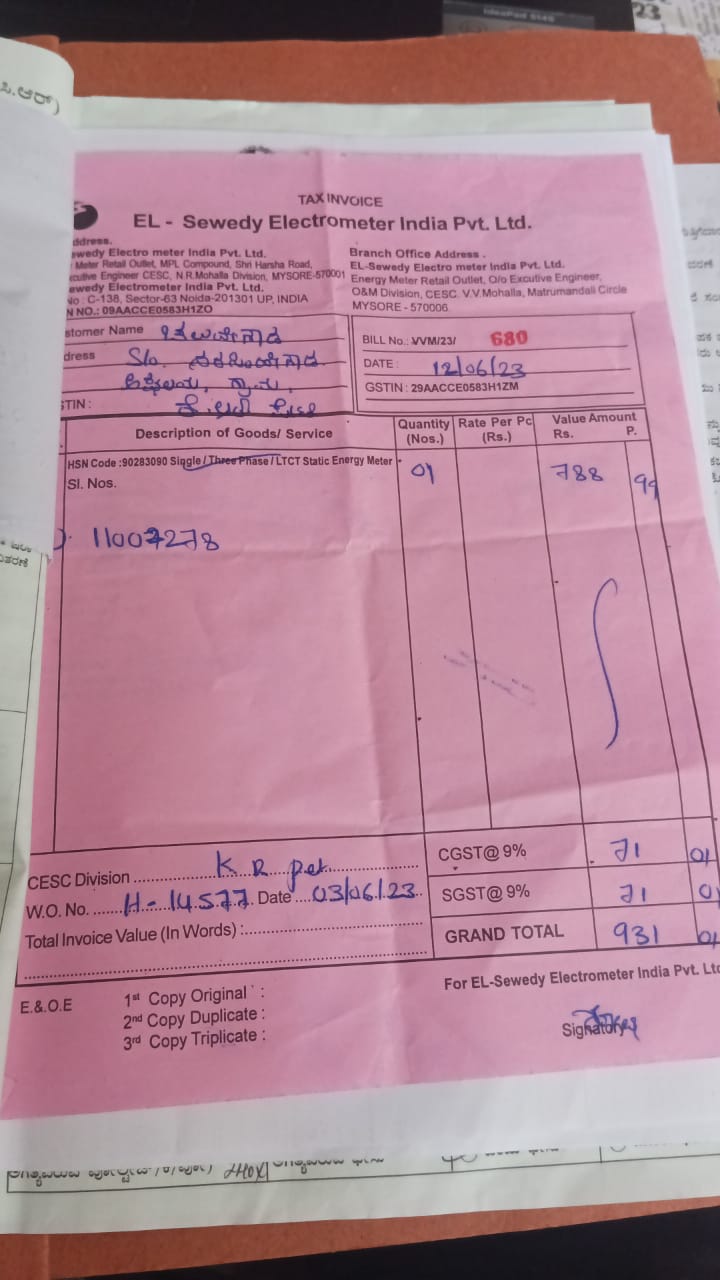 ಸಿ.ಆರ್)
TAX INVOICE
EL - Sewedy Electrometer India Pvt. Ltd.
ddress.
ewedy Electro meter India Pvt. Ltd.
Meter Retail Outlet, MPL Compound, Shri Harsha Road,
cutive Engineer CESC, N.R.Mohalla Division, MYSORE-570001
ewedy Electrometer India Pvt. Ltd.
No : C-138, Sector-63 Noida-201301 UP, INDIA
N NO.: 09AACCE0583H1ZO
Branch Office Address .
EL-Sewedy Electro meter India Pvt. Ltd.
Energy Meter Retail Outlet, O/o Excutive Engineer,
O&M Division, CESC. V.V.Mohalla, Matrumandali Circle
MYSORE - 570006.
stomer Name
dress S/o.
STIN :
BILL No.: VVM/23/ 680
DATE : 12/06/23
GSTIN : 29AACCE0583H1ZM
Description of Goods/ Service
Quantity (Nos.)
Rate Per Pc (Rs.)
Value Amount Rs. P.
HSN Code :90283090 Single / Three Phase / LTCT Static Energy Meter
01 788 99
Sl. Nos.
11007278
CESC Division K R pet
W.O. No. H-14577 Date 03/06/23
Total Invoice Value (In Words) :
CGST@ 9% 71 01
SGST@ 9% 71 01
GRAND TOTAL 931 01
E.&.O.E
1st Copy Original :
2nd Copy Duplicate :
3rd Copy Triplicate :
For EL-Sewedy Electrometer India Pvt. Ltd
Signatory